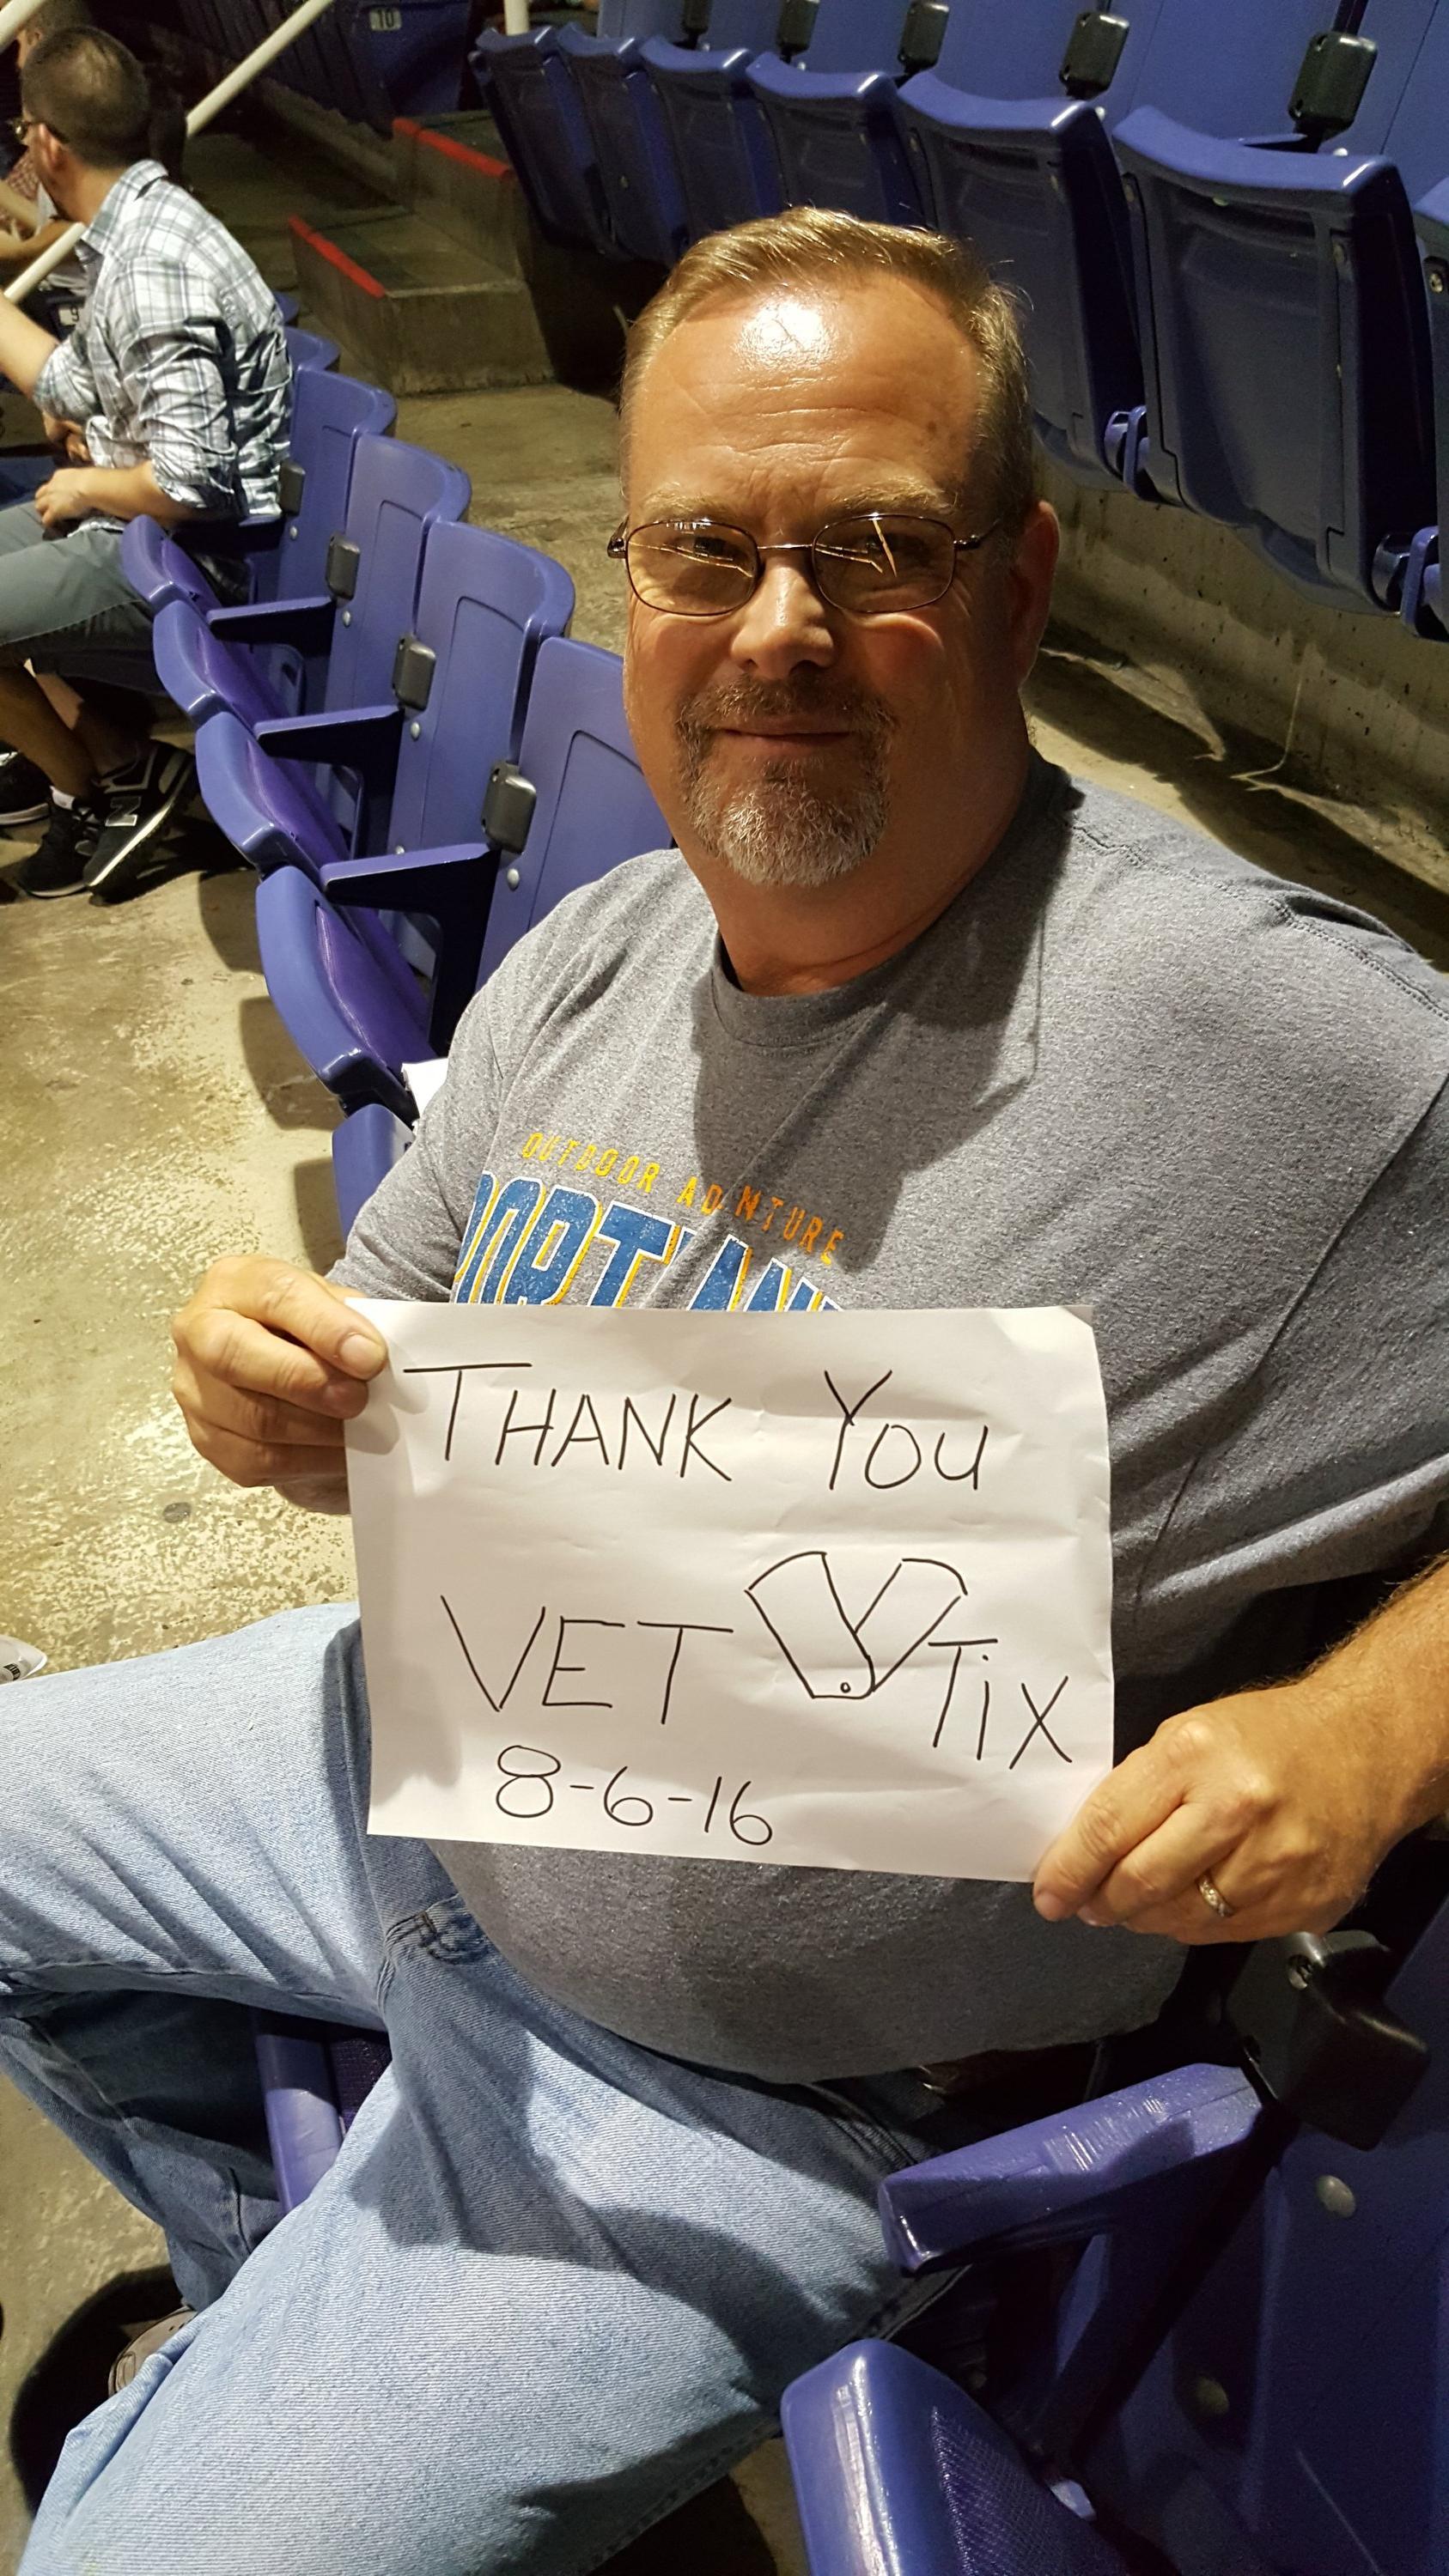 10
9
N
OUTDOOR ADVENTURE
PORTLAND
THANK YOU
VET TiX
8-6-16